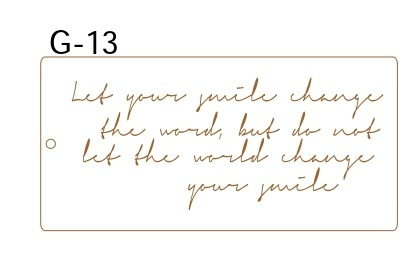 G-13
Let your smile change
the word, but do not
let the world change
your smile